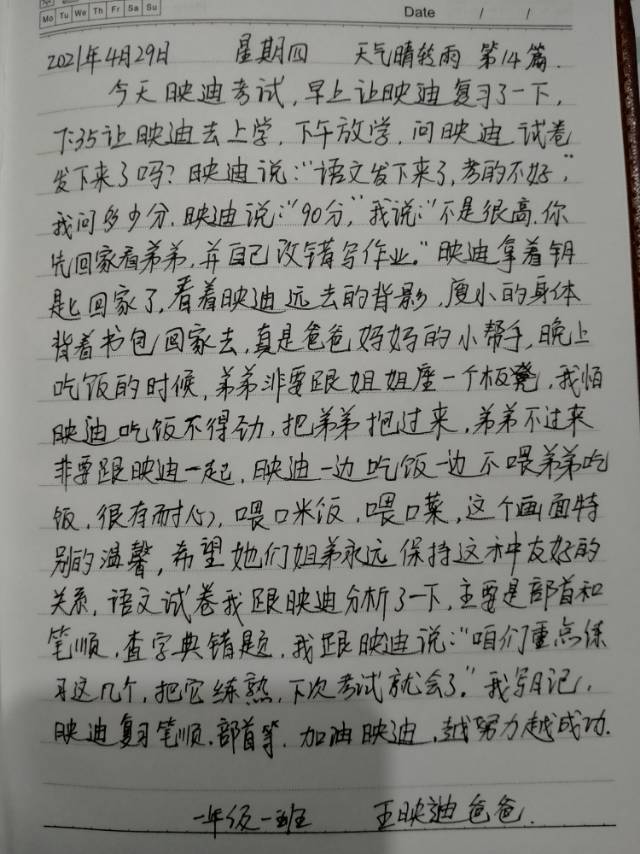 Mo Tu We Th Fr Sa Su
Date / /
2021年4月29日 星期四 天气晴转雨 第14篇.
今天映迪考试,早上让映迪复习了一下,
7:35让映迪去上学,下午放学,问映迪试卷
发下来了吗?映迪说:“语文发下来了,考的不好”,
我问多少分.映迪说:“90分,”我说:“不是很高,你
先回家看弟弟,并自己改错写作业。”映迪拿着钥
匙回家了,看着映迪远去的背影,瘦小的身体
背着书包回家去,真是爸爸妈妈的小帮手,晚上
吃饭的时候,弟弟非要跟姐姐座一个板凳,我怕
映迪吃饭不得劲,把弟弟抱过来,弟弟不过来
非要跟映迪一起,映迪一边吃饭一边不喂弟弟吃
饭,很有耐心,喂口米饭,喂口菜,这个画面特
别的温馨,希望她们姐弟永远保持这种友好的
关系,语文试卷我跟映迪分析了一下,主要是部首和
笔顺,查字典错题,我跟映迪说:“咱们重点练
习这几个,把它练熟,下次考试就会了。”我写日记,
映迪复习笔顺.部首等.加油映迪,越努力越成功.
一年级一班 王映迪爸爸.